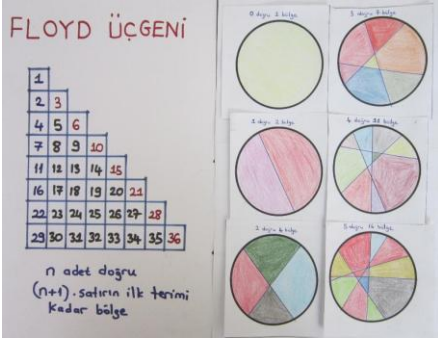 FLOYD ÜÇGENİ
1
2 3
4 5 6
7 8 9 10
11 12 13 14 15
16 17 18 19 20 21
22 23 24 25 26 27 28
29 30 31 32 33 34 35 36
n adet doğru
(n+1). satırın ilk terimi
kadar bölge
0 doğru 1 bölge
3 doğru 7 bölge
1 doğru 2 bölge
4 doğru 11 bölge
2 doğru 4 bölge
5 doğru 16 bölge